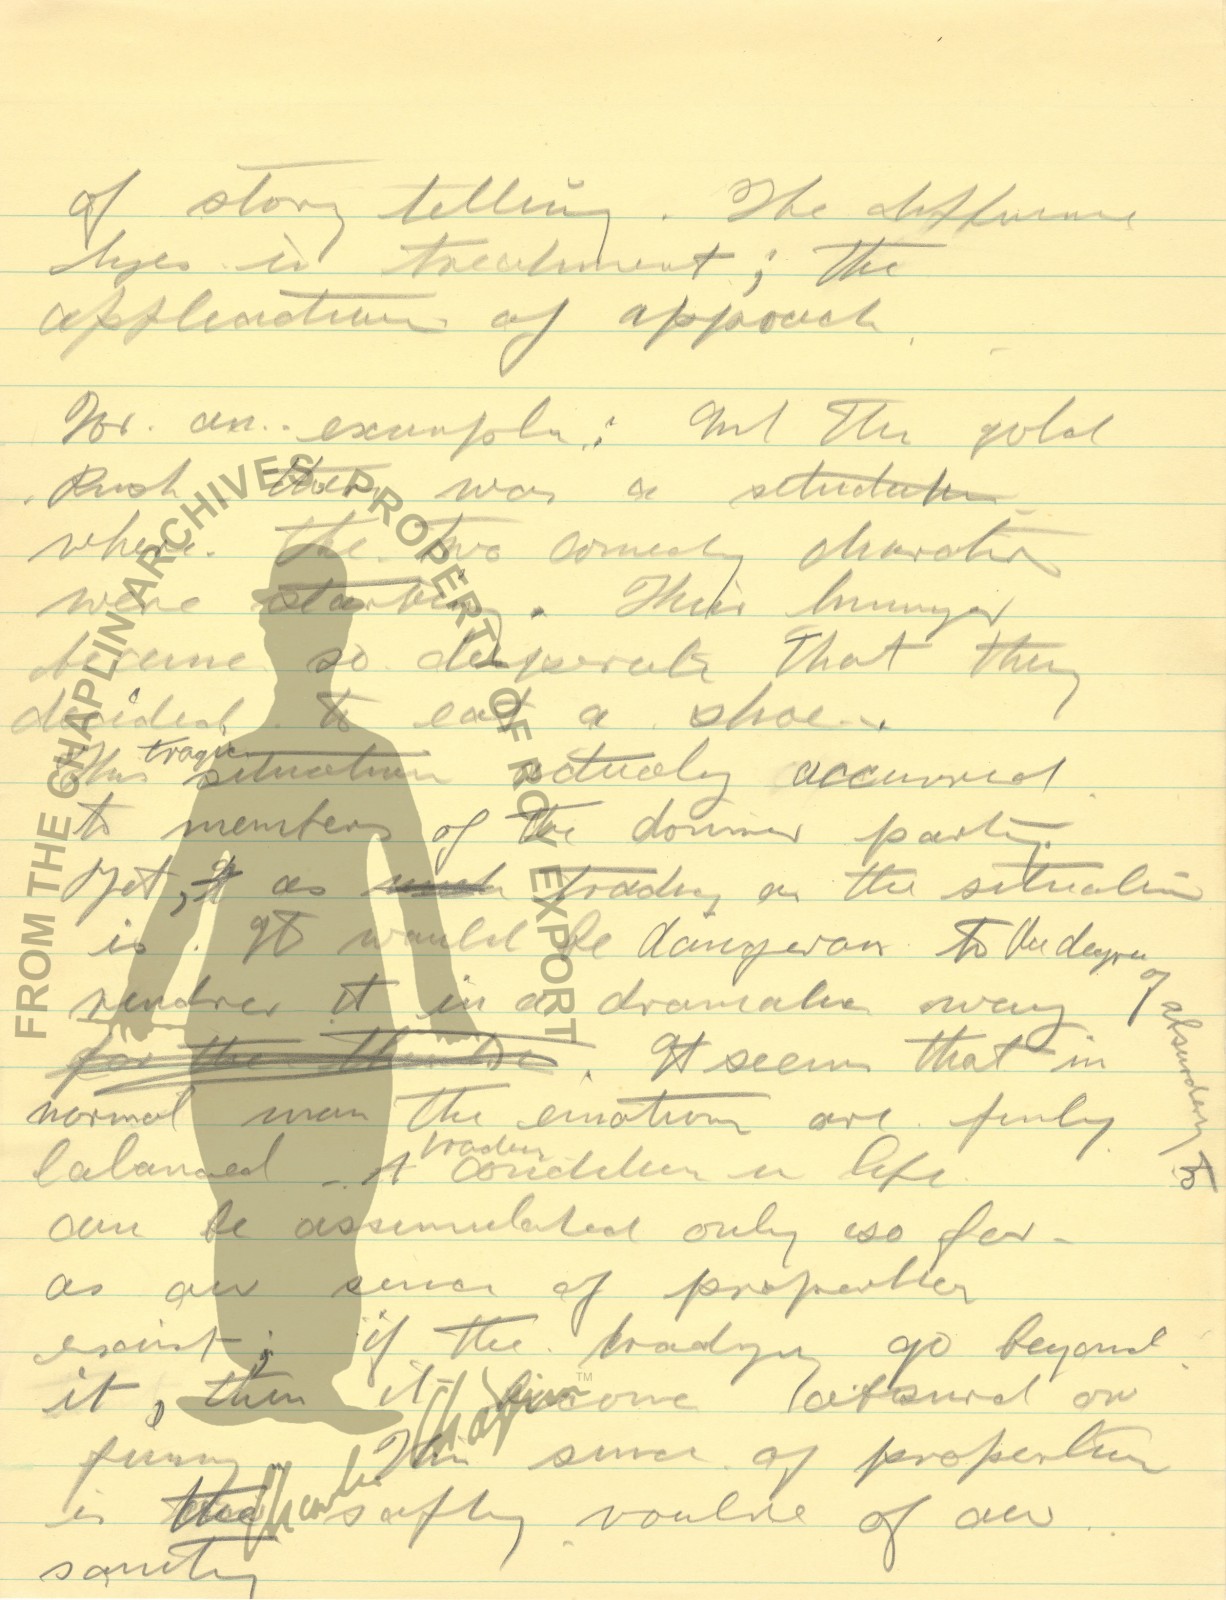 of story telling. The difference
lyes in treatment; the
application of approach
For an example: In The gold
Rush there was a
where the two comedy
were starving. Their hunger
became so desperate that they
decided to eat a shoe.
This tragic situation actualy occurred
to members of the donner party.
Yet, as tradgy as the situation
is. It would be dangerous to the degree of absurdety to
rendrer it in a dramatic way
for the
. It seems that in
normal man the emotions are finly
balanced. A condition in life
can be assimulated only so far
as our sence of
exist; if the tradgy go beyond
it, then it become absurd or
funny. This sence of proportion
is the safty of our
sanity
FROM THE CHAPLIN ARCHIVES PROPERTY OF ROY EXPORT
Charles Chaplin
TM